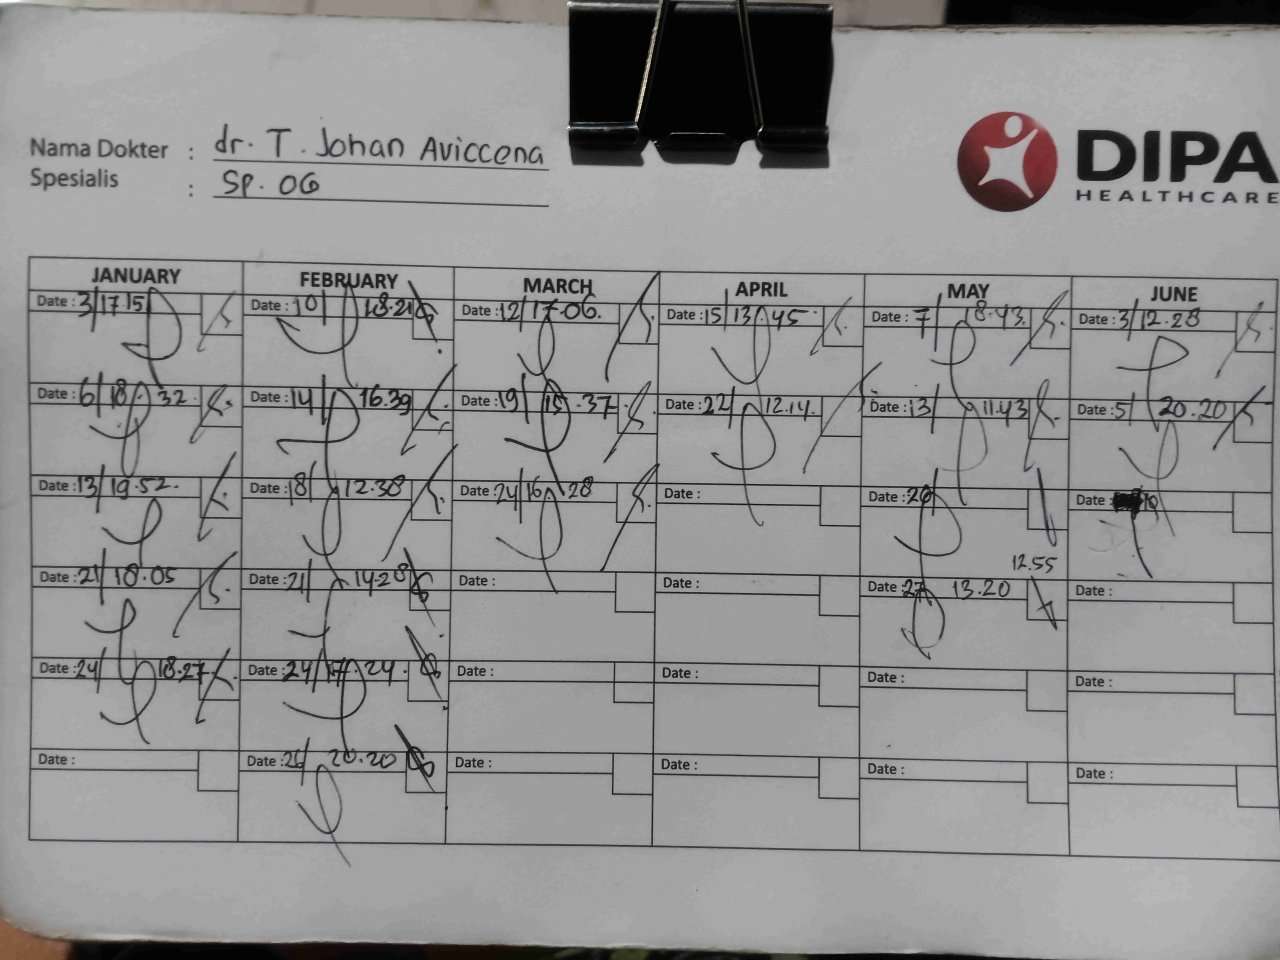 Nama Dokter : dr. T. Johan Aviccena
Spesialis : Sp. OG
DIPA
HEALTHCARE
JANUARY FEBRUARY MARCH APRIL MAY JUNE
Date : 3/17 15 Date : 10/ 18.21 Date : 12/17.06. Date : 15/13.45 Date : 7/ 18.43. Date : 3/12.28
Date : 6/18.32. Date : 14/ 16.39 Date : 19/15.37 Date : 22/ 12.14. Date : 13/ 11.43 Date : 5/ 20.20
Date : 13/19.52. Date : 18/ 12.38 Date : 24/16.28 Date : Date : 20/ Date : 10
12.55
Date : 21/18.05 Date : 21/ 14.28 Date : Date : Date : 27 13.20 Date :
Date : 24/ 18.27 Date : 24/17.24. Date : Date : Date : Date :
Date : Date : 26/ 20.20 Date : Date : Date : Date :